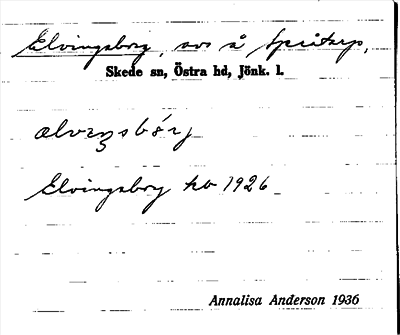 Elvingsborg, avs å Spritarp,
Skede sn, Östra hd, Jönk. l.
Elvingsborg kb 1926
Annalisa Anderson 1936